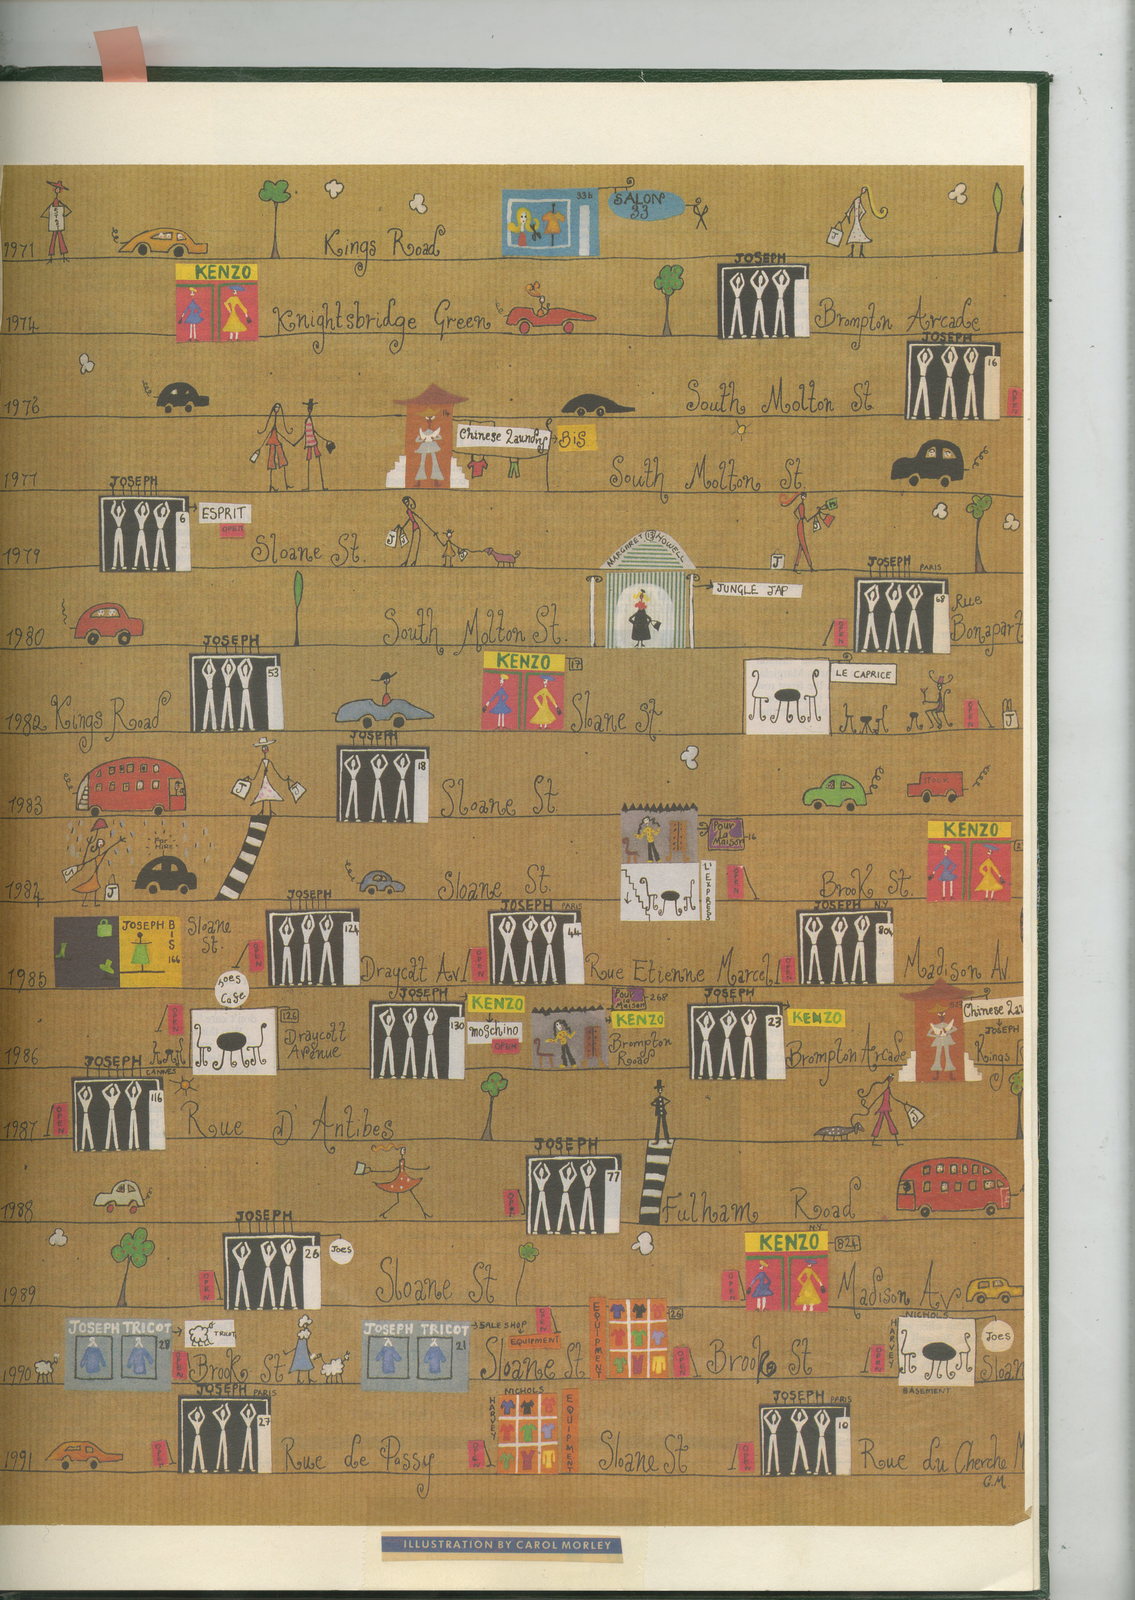 33b
SALON
33
1971
Kings Road
J
KENZO
JOSEPH
1974
Knightsbridge Green
Brompton Arcade
JOSEPH
16
1976
South Molton St
OPEN
14
Chinese Laundry
BIS
1977
South Molton St.
JOSEPH
6
ESPRIT
OPEN
1979
Sloane St
J
J
MARGARET 13 HOWELL
JUNGLE JAP
JOSEPH PARIS
68
Rue
Bonapart
1980
South Molton St.
OPEN
JOSEPH
53
KENZO
17
LE CAPRICE
1982
Kings Road
Sloane St.
OPEN
J
JOSEPH
18
1983
J
J
Sloane St.
STOCK
FOR
HIRE
Pour
La
Maison
16
KENZO
1984
J
J
Sloane St.
L'EXPRESS
OPEN
Brook St.
JOSEPH BIS
166
Sloane
St.
JOSEPH
124
JOSEPH PARIS
44
JOSEPH N.Y
804
1985
OPEN
Draycott Av
OPEN
Roue Etienne Marcel
OPEN
Madison Av
Joes
Cafe
OPEN
126
Draycott
Avenue
JOSEPH
130
KENZO
Moschino
OPEN
Pour
la
Maison
268
KENZO
Brompton
Road
JOSEPH
23
KENZO
Brompton Arcade
Chinese Lau
JOSEPH
Kings R
1986
JOSEPH
CANNES
116
1987
OPEN
Rue D'Antibes
J
JOSEPH
77
1988
OPEN
Fulham Road
JOSEPH
26
Joes
N.Y
KENZO
824
1989
OPEN
Sloane St
OPEN
Madison Av.
JOSEPH TRICOT
28
TRICOT
JOSEPH TRICOT
21
SALE SHOP
EQUIPMENT
OPEN
EQUIPMENT
26
HARVEY
NICHOLS
Joes
1990
OPEN
Brook St
Sloane St
OPEN
Brook St
OPEN
BASEMENT
Sloan
JOSEPH PARIS
27
HARVEY
NICHOLS
EQUIPMENT
JOSEPH PARIS
10
1991
OPEN
Rue de Passy
OPEN
Sloane St
OPEN
Rue du Cherche M
G.M.
ILLUSTRATION BY CAROL MORLEY